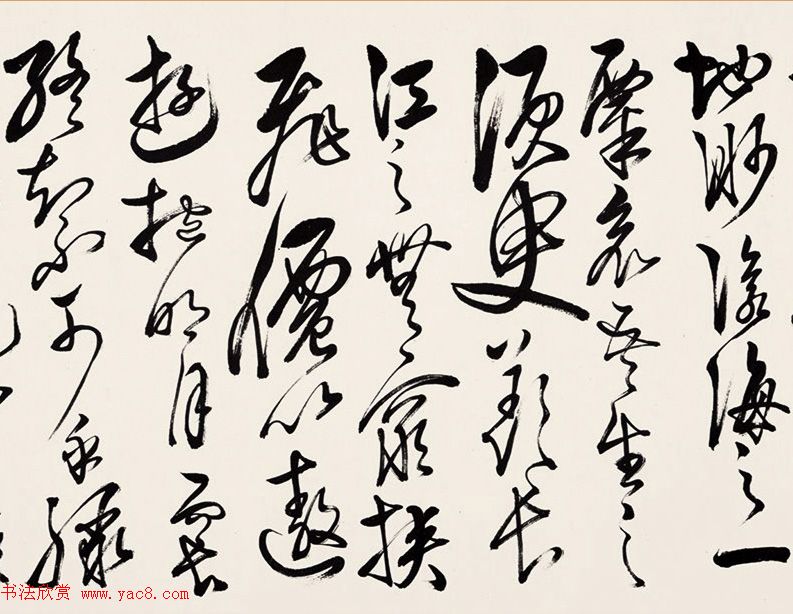 地眇滄海之一
粟哀吾生之
須臾羨長
江之無窮挾
飛僊以遨
遊抱明月而長
終知不可乎驟
书法欣赏 www.yac8.com